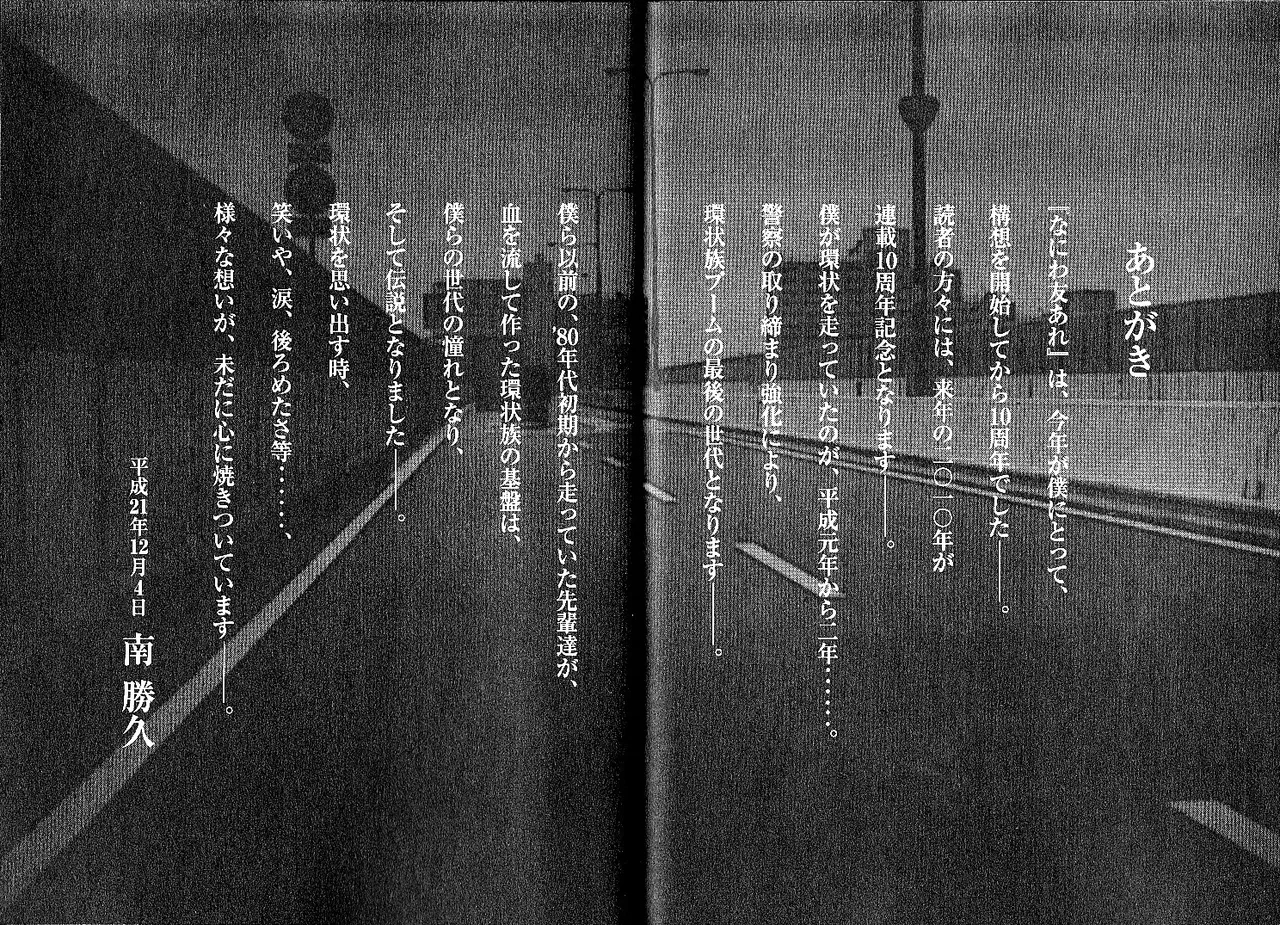 あとがき
『なにわ友あれ』は、今年が僕にとって、
構想を開始してから10周年でした――。
読者の方々には、来年の二〇一〇年が
連載10周年記念となります――。
僕が環状を走っていたのが、平成元年から二年‥‥‥‥。
警察の取り締まり強化により、
環状族ブームの最後の世代となります――。
僕ら以前の、'80年代初期から走っていた先輩達が、
血を流して作った環状族の基盤は、
僕らの世代の憧れとなり、
そして伝説となりました――。
環状を思い出す時、
笑いや、涙、後ろめたさ等‥‥‥、
様々な想いが、未だに心に焼きついています――。
平成21年12月4日 南 勝久